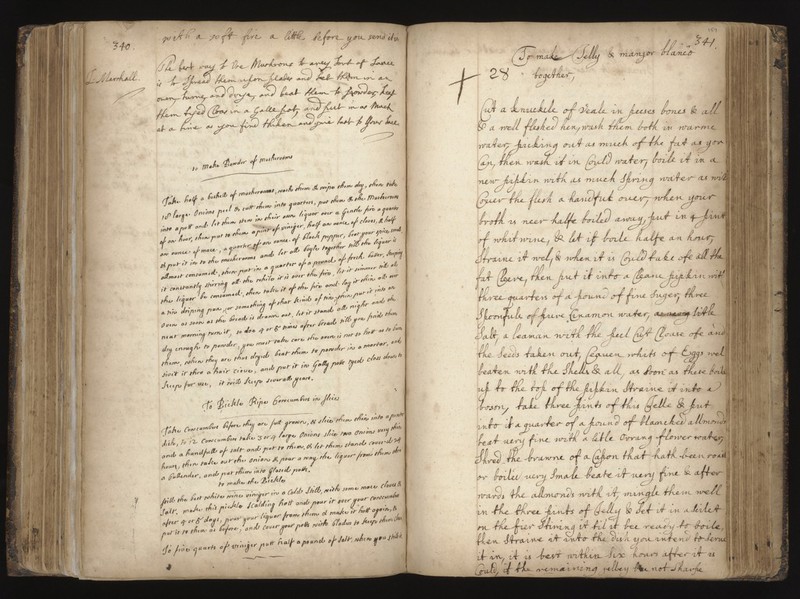 340.
with a soft fire a little before you send it in
Marshall
The best way to Use Mushrons to avery Sort of Sause
is to Spread them upon plates and set them in an
oven, turne, and drye, and beat them to powder, keep
them tyed Close in a Galle pot, and put in as Much
at a time as you find thicken and give tast to your Sause
to make Powder of mushrooms
Take half a bushell of mushrooms, wash them & wipe them dry, then take
10 large onions peel & cutt them into quarters, put them & the Mushrooms
into a pott and let them stew in their own liquor over a Gentle fire a quarter
of an hour, then put to them a pint of viniger, half an ounce of cloves, & half
an ounce of mace, a quarter of an ounce of black pepper, beat your spice small
& put it in to the mushrooms and let all boyle together till the liquor is
allmost consumed, then put in a quarter of a pound of fresh butter, keeping
it constantly stirring all the while it is over the fire, let it simmer till all
the liquor be consumed, then take it of the fire and lay it thin all over
a tin driping pan, or something of that kind of tin, then put it into an
oven as soon as the bread is drawn out, let it stand all night and the
next morning turn it, so doe 4 or 5 times after bread till you find them
dry enough to powder, you must take care the oven is not so hott as to burn
them, when they are thus dryed beat them to powder in a mortar, and
sift it thro a hair sieve, and put it in Gally pots tyed close down to
keep for use, it will keep severall years.
To Pickle Ripe Cowcumbers in slices
Take Cowcumbers before they are full grown, & slice them thin into a pewter
dish, to 12 Cowcumbers take 3 or 4 large onions slice
and a handfull of salt and put to them, & let them stand cover'd 24
hours, then take out the onions & pour away the liquor from them thro
a Cullender, and put them into Glassed potts,
to make the Pickle
still the best white wine viniger in a Cold Still, with some mace cloves &
Salt, make this pickle scalding hott and pour it over your Cowcumbers
after 4 or 5 days, pour your liquor from them & make it hott again, &
put it to them as before, and cover your pott with Bladder to keep them close
To five quarts of viniger putt half a pound of Salt, when you still it
341.
To make Jelly & manger blanco
28 together,
Cut a knuckele of veale in peeses bones & all
& a well fleshed hen, wash them both in warme
water, picking out as much of the fat as you
Can, then wash it in Could water, boile it in a
new pipkin with as much Spring water as will
Cover the flesh a handfull over, when your
broth is neer halfe boiled away, put in 4 pints
of whit wine, & let it boile halfe an hour,
Straine it wel, & when it is Could take ofe all the
fat Cleere, then put it into a Cleane pipkin with
three quarters of a pound of fine Suger, three
Spoonfuls of pure Cinamon water, little
Salt, a leaman with the peel Cut Clouse ofe and
the seeds taken out, whits of Eggs wel
beaten with the Shells & all, as soon as these boile
up to the top of the pipkin Straine it into a
boson, take three pints of this Jelle & put
into it a quarter of a pound of blanched allmonds
beat very fine with a little Oorang-flower water,
Shred the brawne of a Capon that hath been rosted
or boiled very Smale beate it very fine & after
wards the allmonds with it, mingle them well
in the three pints of Jelly & Set it in a Skilet
on the fier Stiring it til it bee ready to boile,
then Straine it into the dish you intend to serve
it in, it is best within Six hours after it is
Could, if the remaining jelley be not Sharpe